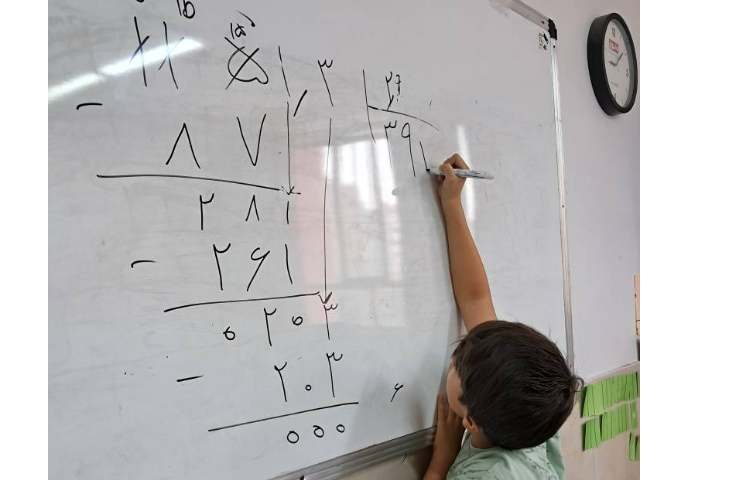 ۱۱۵۱٫۳ ۲۹
- ۸۷ ۳۹
۲۸۱
- ۲۶۱
۰۲۰۳
- ۲۰۳
۰۰۰